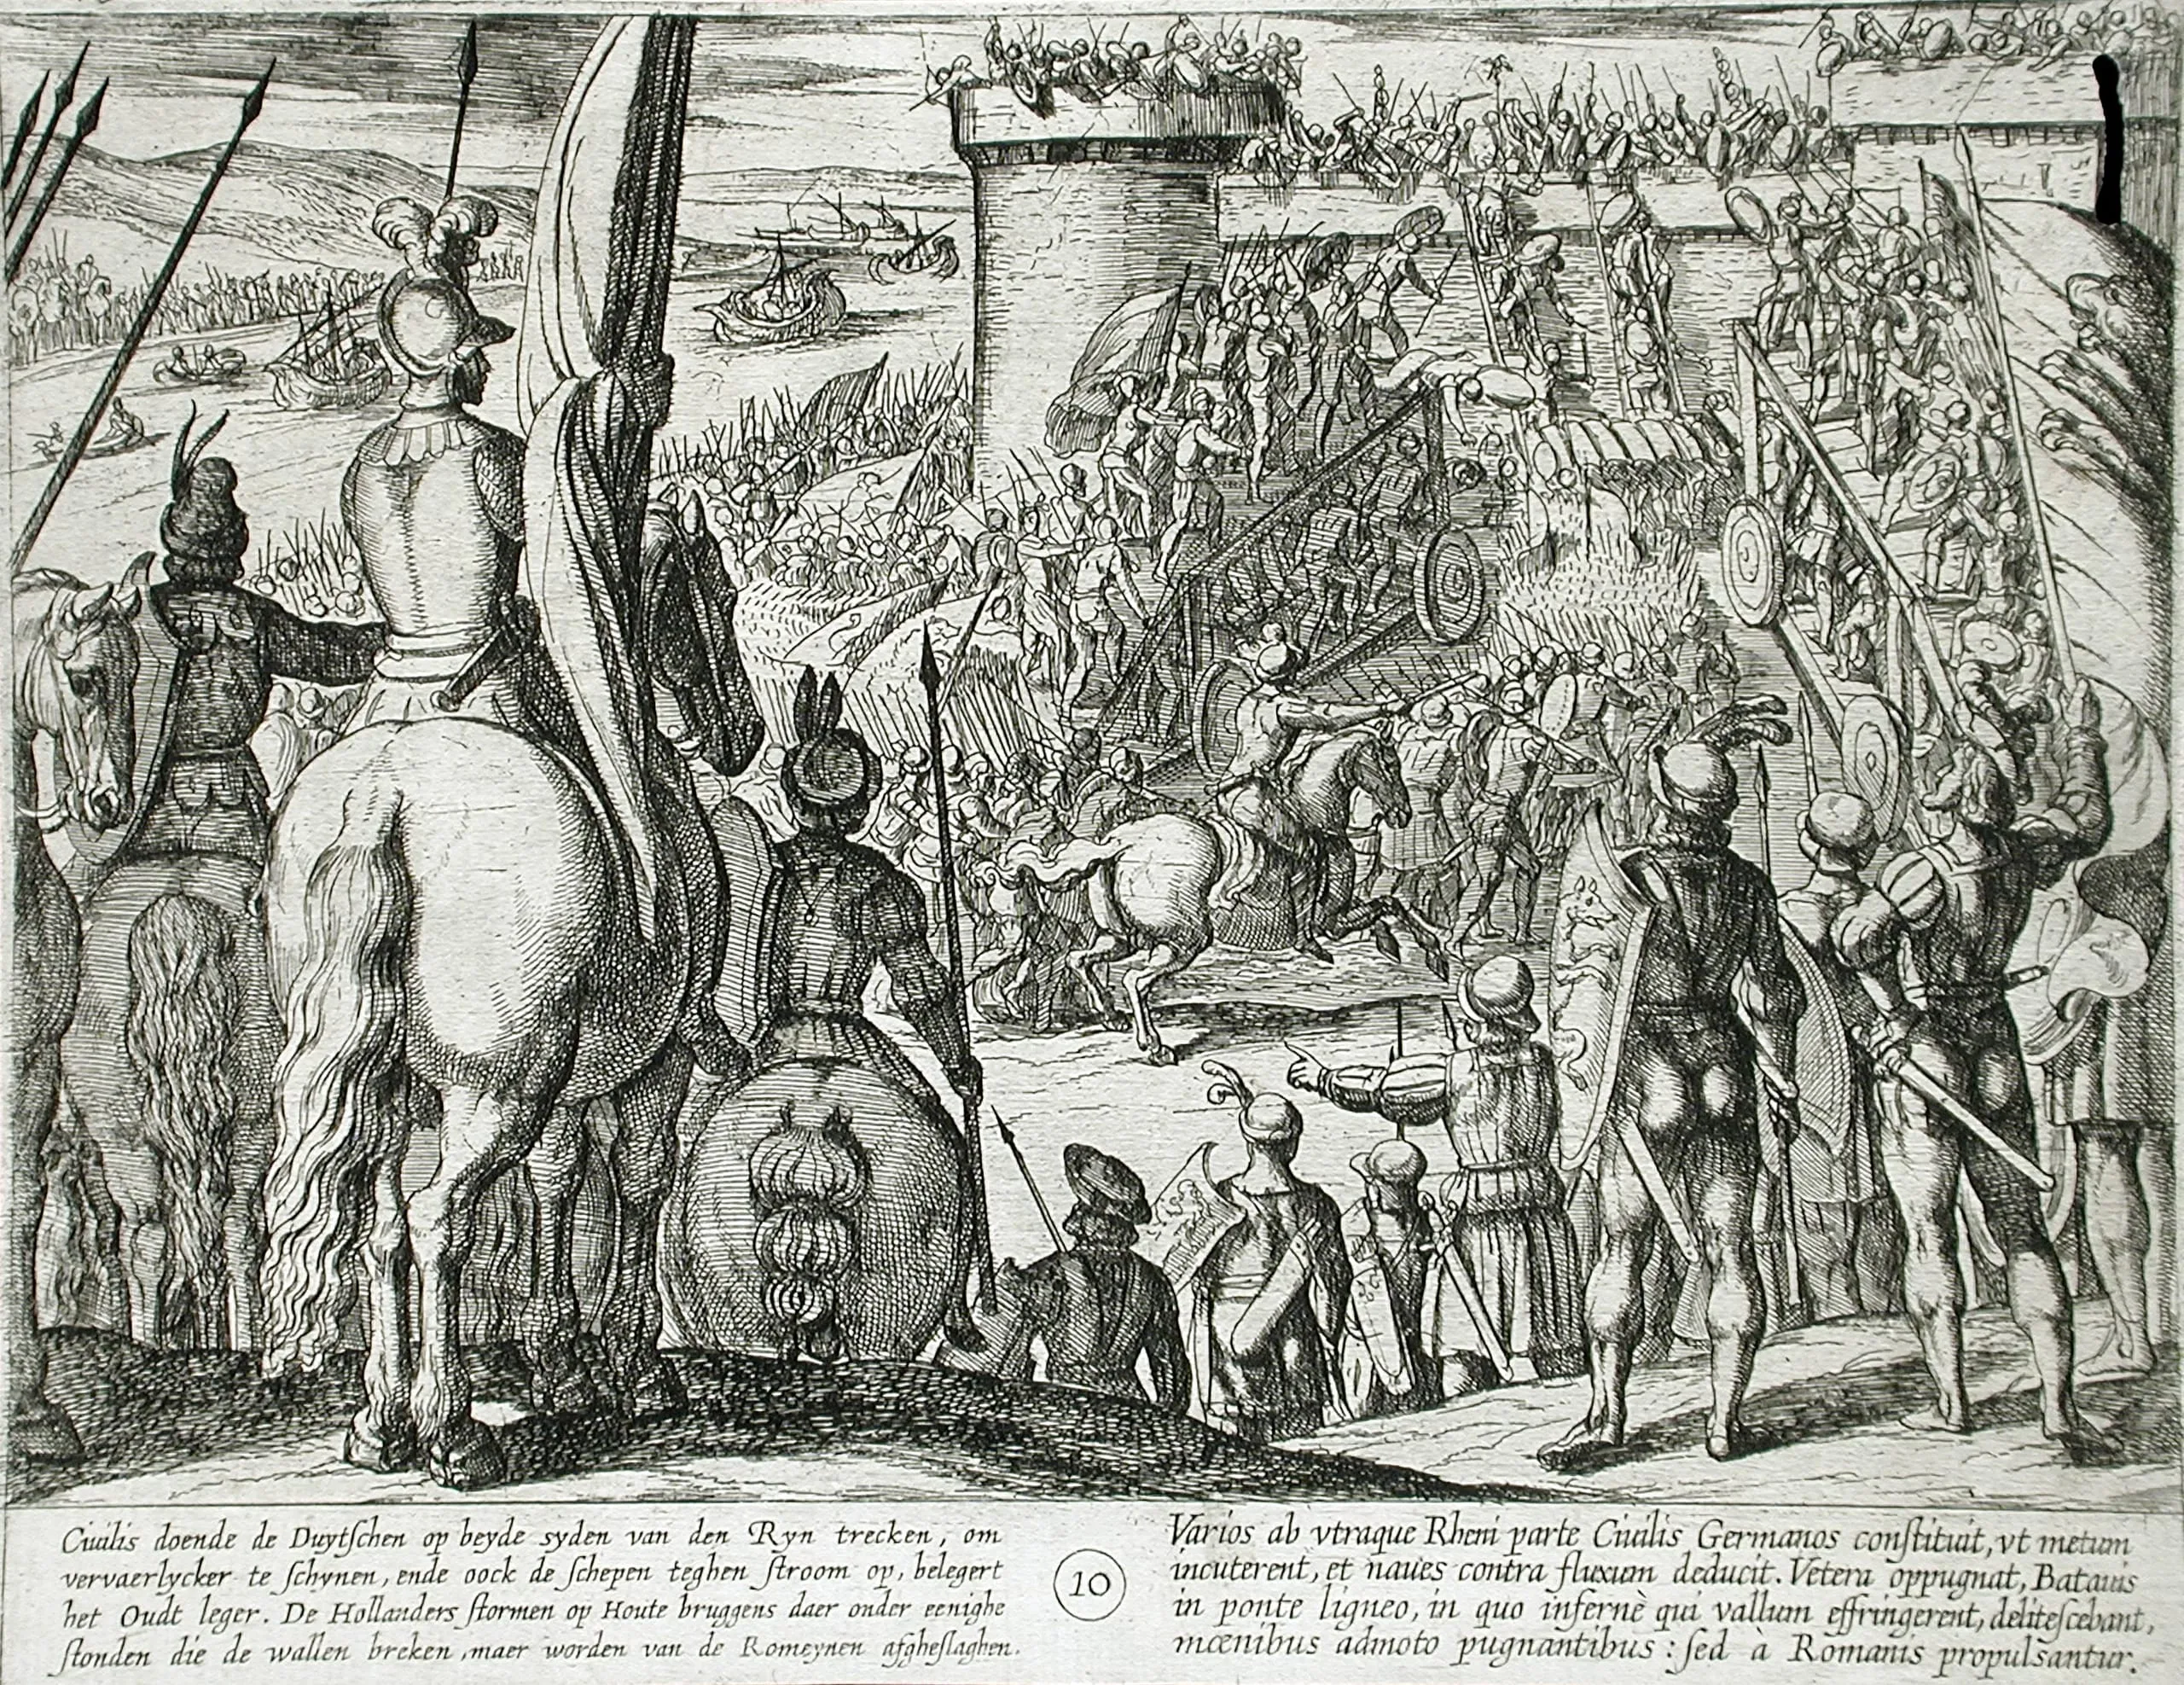 Ciuilis doende de Duytſchen op beyde syden van den Ryn trecken, om
vervaerlycker te ſchynen, ende oock de ſchepen teghen ſtroom op, belegert
het Oudt leger. De Hollanders ſtormen op Houte bruggens daer onder eenighe
ſtonden die de wallen breken, maer worden van de Romeynen afgheſlaghen.
10
Varios ab vtraque Rheni parte Ciuilis Germanos conſtituit, vt metum
incuterent, et naues contra fluxum deducit. Vetera oppugnat, Batauis
in ponte ligneo, in quo infernè qui vallum effringerent, deliteſcebant,
mœnibus admoto pugnantibus: ſed à Romanis propulsantur.